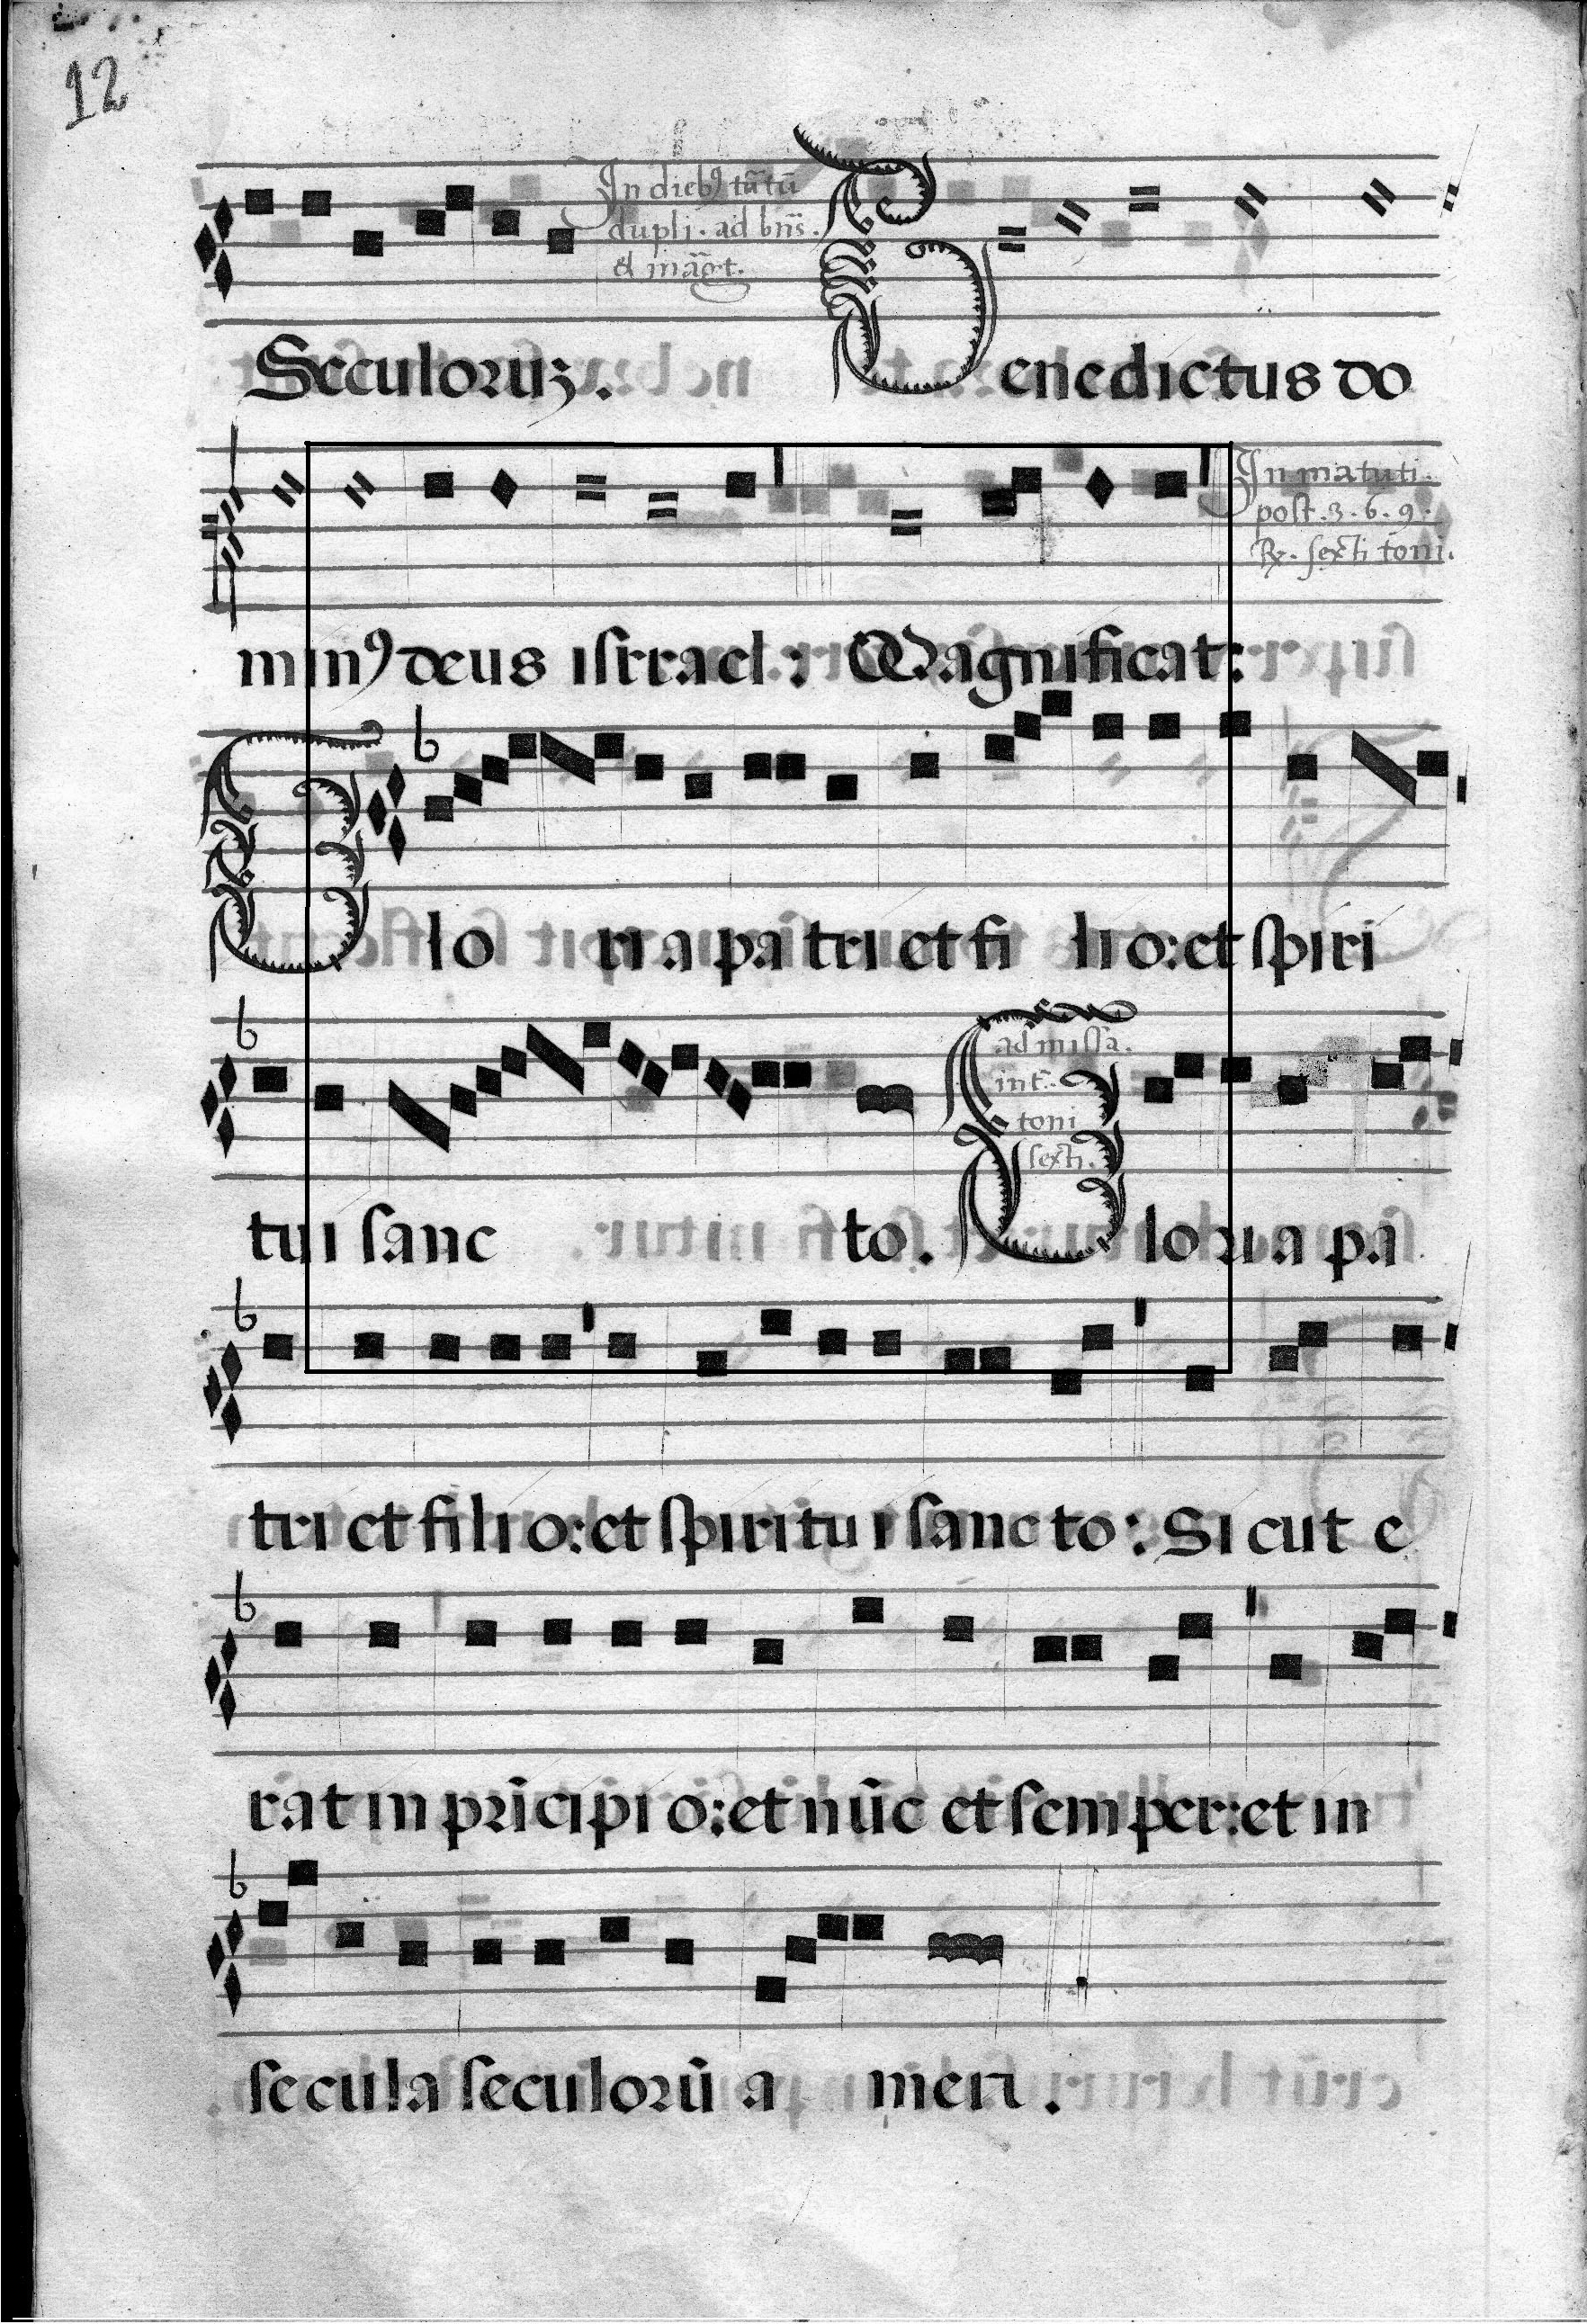 12
In dieb⁹ tãtũ
dupli. ad bñs.
et mãgt.
Seculoruz. Benedictus do
In matuti.
post .3. 6. 9.
℞. sexti toni.
min⁹ deus iſrrael : Magnificat:
Glo ri a pa tri et fi li o: et ſpiri
ad miſſa.
int̄.
toni
sexti.
tui ſanc to. Gloria pa
tri et fili o: et ſpiritu i ſanc to : Si cut e
rat in prĩcipi o: et nũc et ſemper: et in
ſecula ſeculorũ a men .